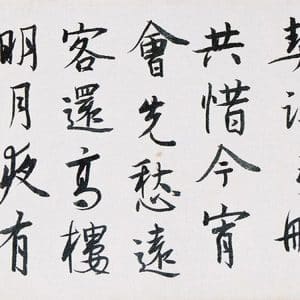 共惜今宵
會先愁遠
客還高樓
明月夜有